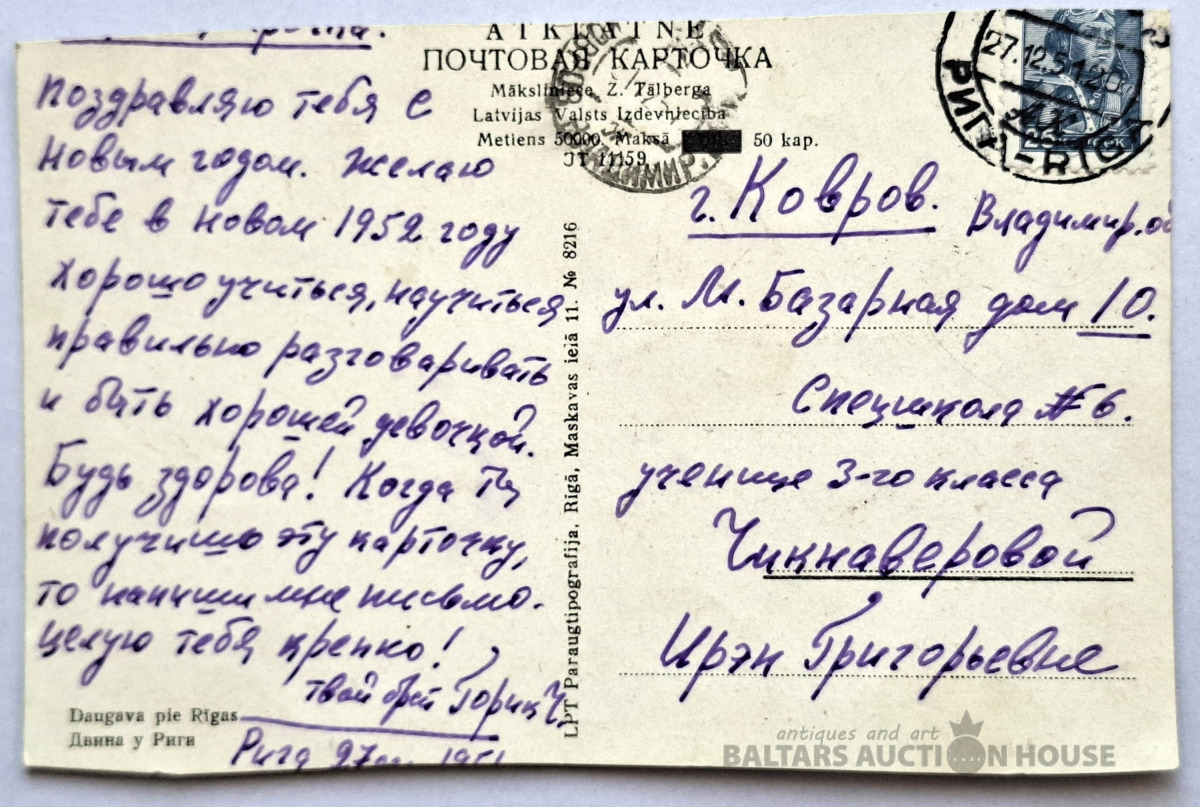 ATKLATNE
ПОЧТОВАЯ КАРТОЧКА
Māksliniece Z. Tālberga
Latvijas Valsts Izdevniecība
Metiens 50000. Maksā 50 kap.
JT 11159
Поздравляю тебя с
Новым годом. Желаю
тебе в новом 1952 году
хорошо учиться, научиться
правильно разговаривать
и быть хорошей девочкой.
Будь здорова! Когда Ты
получишь эту карточку,
то напиши мне письмо.
Целую тебя крепко!
твой брат Горик Ч.
Рига 27 1951
Daugava pie Rīgas
Двина у Риги
LPT Paraugtipografija, Rīgā, Maskavas ielā 11. № 8216
27.12.51 20
РИГА-RIGA
г. Ковров. Владимир.об
ул. М. Базарная дом 10.
Спецшкола № 6.
ученице 3-го класса
Чикнаверовой
Ирэн Григорьевне
antiques and art
BALTARS AUCTION HOUSE